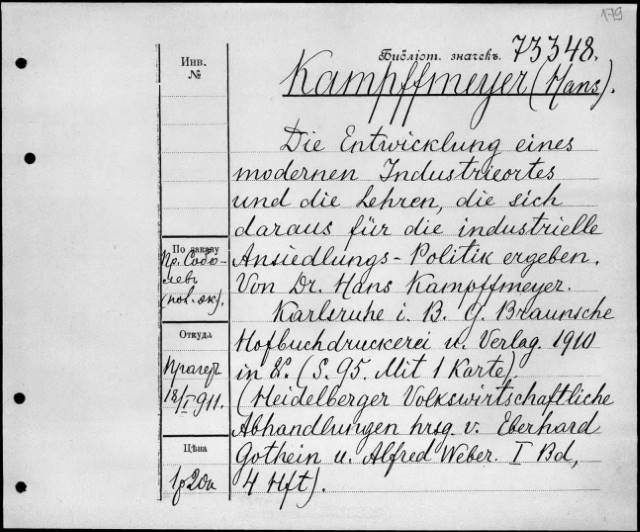 179
Библіот. значекъ 73348.
Инв.
№
Kampffmeyer (Hans).
Die Entwicklung eines
modernen Industrieortes
und die Lehren, die sich
daraus für die industrielle
Ansiedlungs-Politik ergeben.
Von Dr. Hans Kampffmeyer.
Karlsruhe i. B. G. Braunsche
Hofbuchdruckerei u. Verlag. 1910
in 8°. (S. 95. Mit 1 Karte).
(Heidelberger Volkswirtschaftliche
Abhandlungen hrsg. v. Eberhard
Gothein u. Alfred Weber. I Bd,
4 Hft).
По заказу
Пр. Собо-
левъ
(пол. эк).
Откуда
Прагеръ
18/I 911.
Цѣна
1р 20к